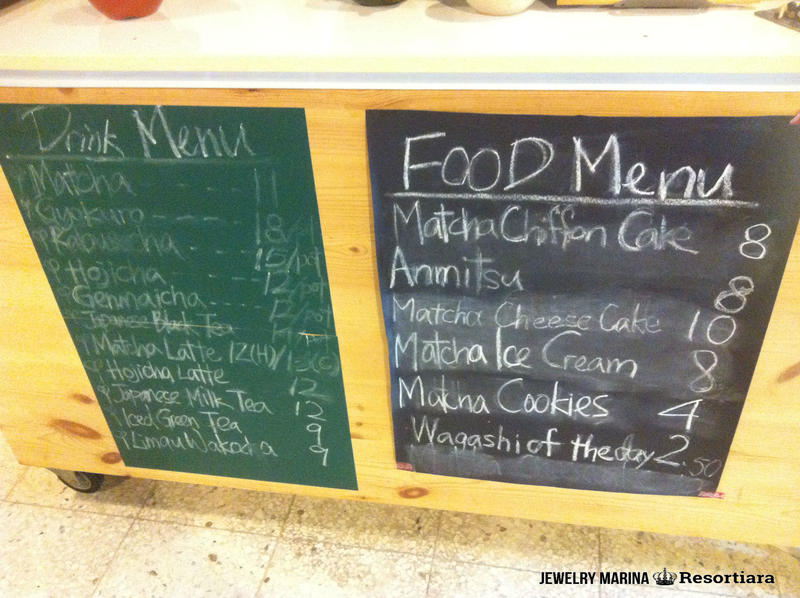 Drink Menu
Matcha - - - - 11
Gyokuro - - - - 18/pot
Kabusecha - - - - 15/pot
Hojicha - - - - 12/pot
Genmaicha - - - - 12/pot
Japanese Black Tea
Matcha Latte 12(H)/13(C)
Hojicha Latte 12
Japanese Milk Tea 12
Iced Green Tea 9
Limau Wakocha 9
FOOD Menu
Matcha Chiffon Cake 8
Anmitsu 8
Matcha Cheese Cake 10
Matcha Ice Cream 8
Matcha Cookies 4
Wagashi of the day 2.50
JEWELRY MARINA Resortiara